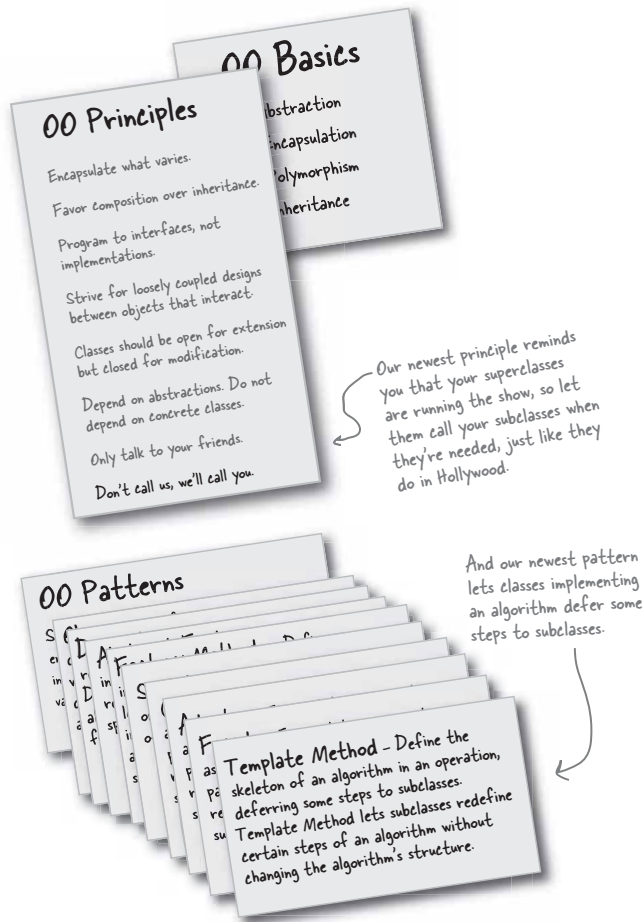 OO Basics
bstraction
ncapsulation
olymorphism
nheritance
OO Principles
Encapsulate what varies.
Favor composition over inheritance.
Program to interfaces, not
implementations.
Strive for loosely coupled designs
between objects that interact.
Classes should be open for extension
but closed for modification.
Depend on abstractions. Do not
depend on concrete classes.
Only talk to your friends.
Don't call us, we'll call you.
Our newest principle reminds
you that your superclasses
are running the show, so let
them call your subclasses when
they're needed, just like they
do in Hollywood.
OO Patterns
And our newest pattern
lets classes implementing
an algorithm defer some
steps to subclasses.
Template Method - Define the
skeleton of an algorithm in an operation,
deferring some steps to subclasses.
Template Method lets subclasses redefine
certain steps of an algorithm without
changing the algorithm's structure.